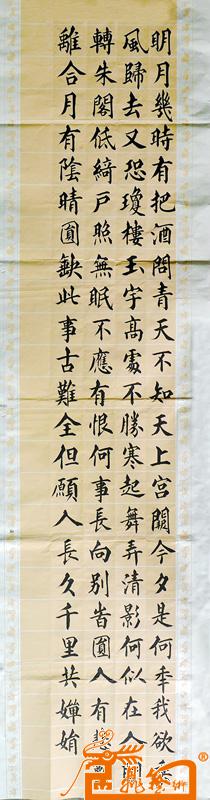 明月幾時有把酒問青天不知天上宮闕今夕是何年我欲乘
風歸去又恐瓊樓玉宇高處不勝寒起舞弄清影何似在人間
轉朱閣低綺戶照無眠不應有恨何事長向別旹圓人有悲
離合月有陰晴圓缺此事古難全但願人長久千里共嬋娟